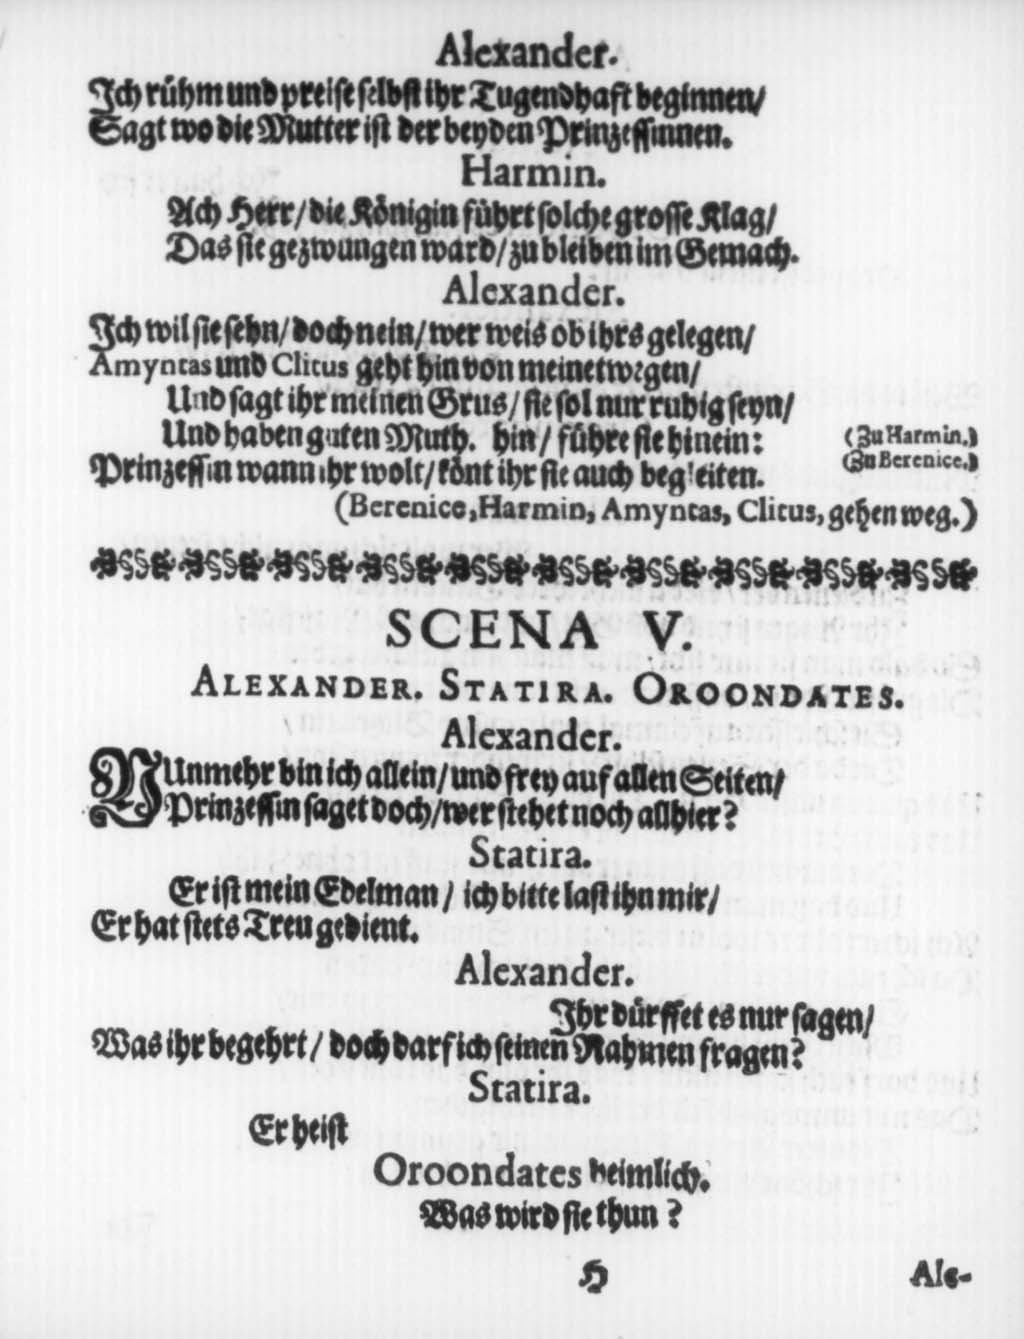 Alexander.
Jch rühm und preise selbst ihr Tugendhaft beginnen/
Sagt wo die Mutter ist der beyden Prinzessinnen.
Harmin.
Ach Herr/ die Königin führt solche grosse Klag/
Das sie gezwungen ward/ zu bleiben im Gemach.
Alexander.
Jch wil sie sehn/ doch nein/ wer weis ob ihrs gelegen/
Amyntas und Clitus geht hin von meinetwegen/
Und sagt ihr meinen Grus/ sie sol nur ruhig seyn/
Und haben guten Muth. hin/ führe sie hinein: (Zu Harmin.)
(Zu Berenice.)
Prinzessin wann ihr wolt/ könt ihr sie auch begleiten.
(Berenice, Harmin, Amyntas, Clitus, gehen weg.)
SCENA V.
ALEXANDER. STATIRA. OROONDATES.
Alexander.
NUnmehr bin ich allein/ und frey auf allen Seiten/
Prinzessin saget doch/ wer stehet noch allhier?
Statira.
Er ist mein Edelman/ ich bitte last ihn mir/
Er hat stets Treu gedient.
Alexander.
Jhr dürffet es nur sagen/
Was ihr begehrt/ doch darf ich seinen Nahmen fragen?
Statira.
Er heist
Oroondates heimlich.
Was wird sie thun?
H Ale-